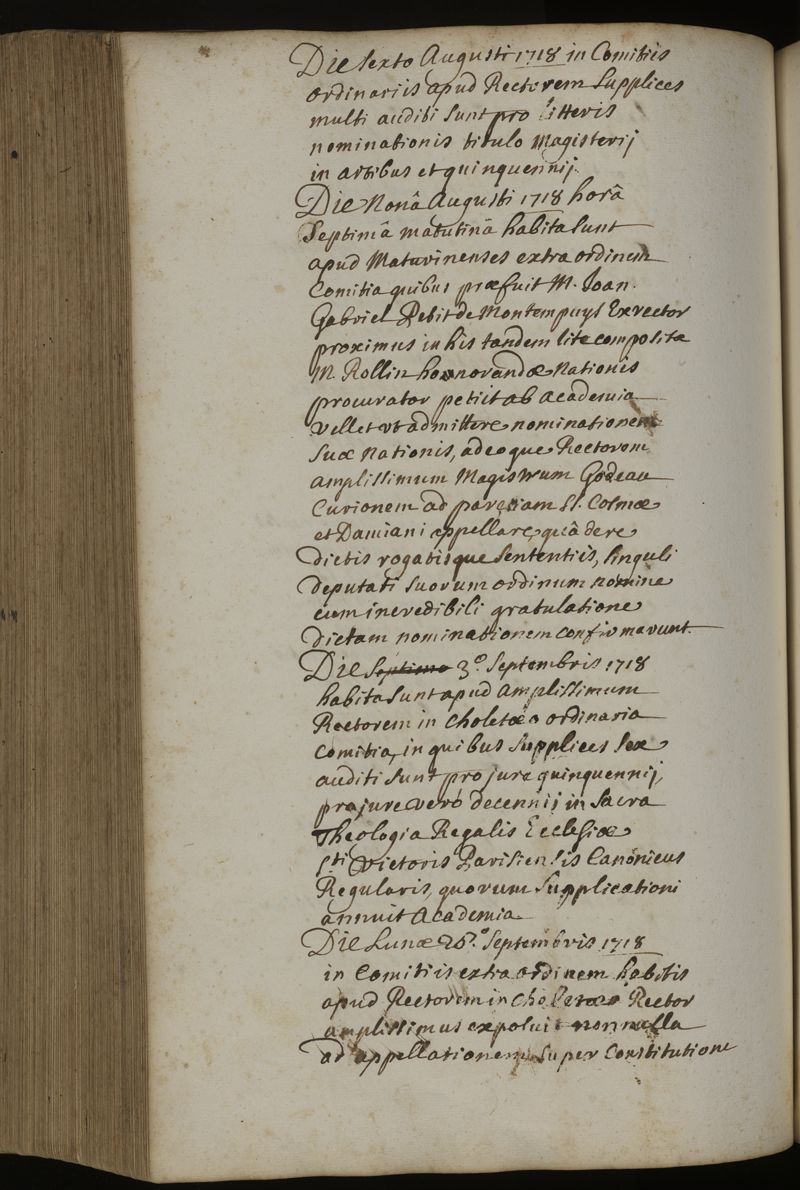 Die sexto Augusti 1718 in Comitiis
ordinariis apud Rectorem supplices
multi auditi sunt pro litteris
nominationis titulo Magisterij
in artibus et quinquennij.
Die Nonâ Augusti 1718 horâ
septimâ matutinâ habita sunt
apud Maturinenses extra ordinem
Comitia quibus præfuit M. Joan.
Gabriel Petit de Montempuys Exrector
proximus in his tandem lite composita
M. Rollin honorandæ Nationis
procurator petiit ab academia
vellet vt admittere nominationem
suæ Nationis, adeoque Rectorem
amplissimum Magistrum Godeau
Curionem ad parœciam SS. Cosmæ
et Damiani appellare, quâ de re
dictis rogatisque sententiis, singuli
deputati suorum ordinum nomine
cum incredibili gratulatione
dictam nominationem confirmavunt.
Die septimo 3º. Septembris 1718
habita sunt apud amplissimum
Rectorem in Choletæo ordinaria
comitia, in quibus supplices sex
auditi sunt pro jure quinquennij,
pro jure verò decennij in sacra
Theologia Regalis Ecclesiæ
Sti Victoris Parisiensis Canonicus
Regularis, quorum supplicationi
annuit Academia
Die Lunæ 26º. Septembris 1718
in Comitiis extra ordinem habitis
apud Rectorem in Choletæo Rector
amplissimus exposuit nonnulla
ad appellationem super Constitutione